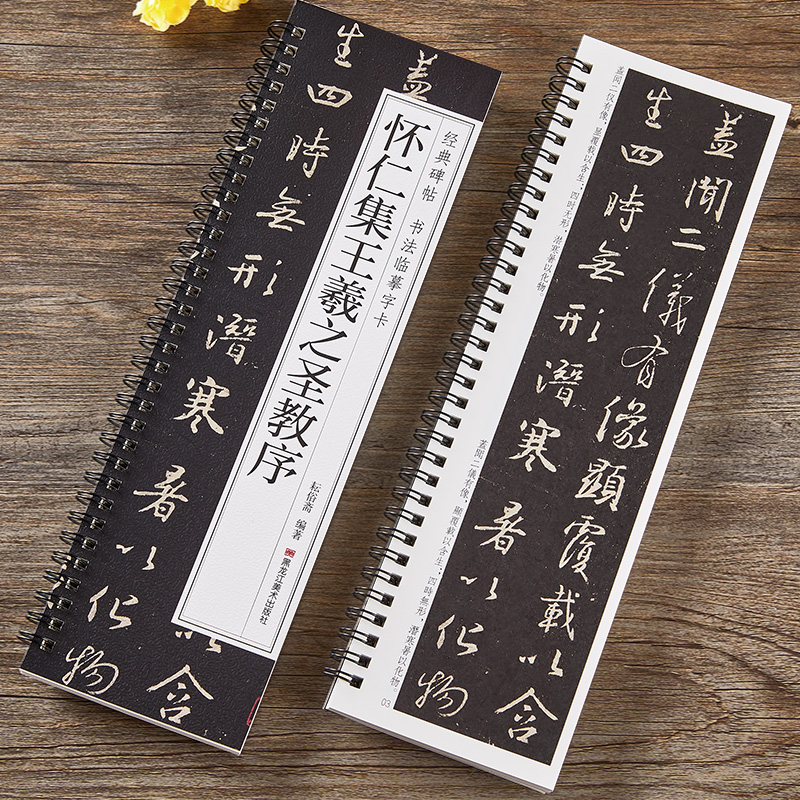 蓋
以含
生四時無形潛寒暑以化物
经典碑帖 书法临摹字卡
怀仁集王羲之圣教序
耘俗斋 编著
黑龙江美术出版社
蓋聞二儀有像顯覆載以含
生四時無形潛寒暑以化物
盖闻二仪有像，显覆载以含生；四时无形，潜寒暑以化物。
蓋聞二儀有像，顯覆載以含生；四時無形，潛寒暑以化物。
03